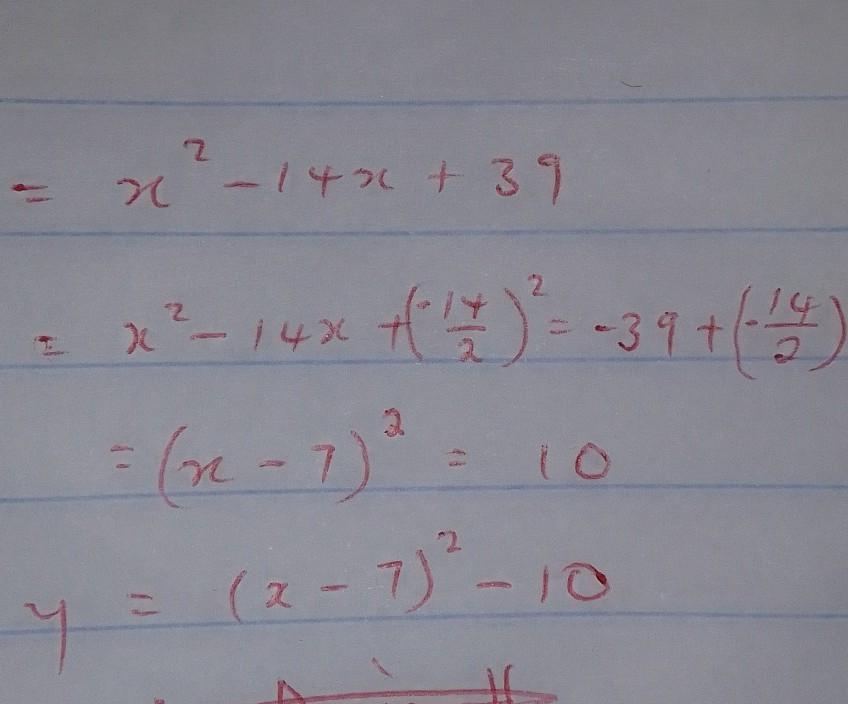 = x² - 14x + 39
= x² - 14x + (-14/2)² = -39 + (-14/2)
= (x - 7)² = 10
y = (x - 7)² - 10